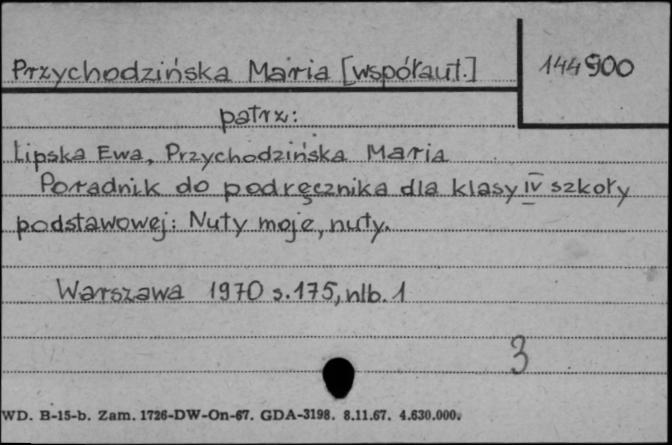 Przychodzińska Maria [współaut.]
144900
patrz:
Lipska Ewa, Przychodzińska Maria
Poradnik do podręcznika dla klasy IV szkoły
podstawowej: Nuty moje, nuty.
Warszawa 1970 s.175, nlb. 1
3
WD. B-15-b. Zam. 1726-DW-On-67. GDA-3198. 8.11.67. 4.630.000.